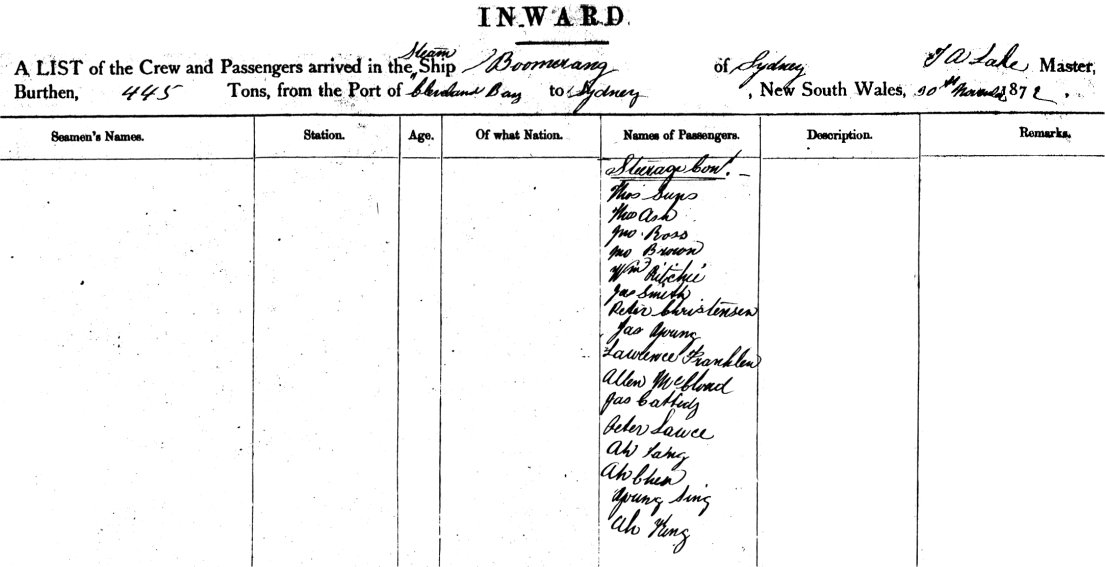 INWARD.
A LIST of the Crew and Passengers arrived in the Steam Ship Boomerang of Sydney T A Lake Master,
Burthen, 445 Tons, from the Port of Cleveland Bay to Sydney, New South Wales, 1872.
Seamen's Names. Station. Age. Of what Nation. Names of Passengers. Description. Remarks.
Steerage Cont.
Thos
Thos Ash
Jno. Ross
Jno Brown
Wm Ritchie
Jas Smith
Peter Christensen
Jas Young
Lawrence Franklen
Allen McCloud
Jas
Peter
Ah
Ah Chen
Young Sing
Ah King